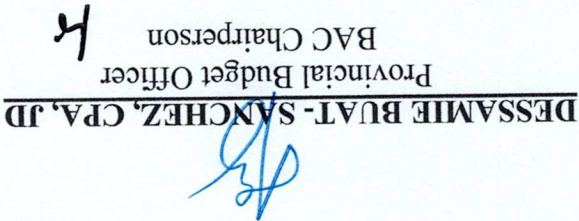 DESSAMIE BUAT- SANCHEZ, CPA, JD
Provincial Budget Officer
BAC Chairperson